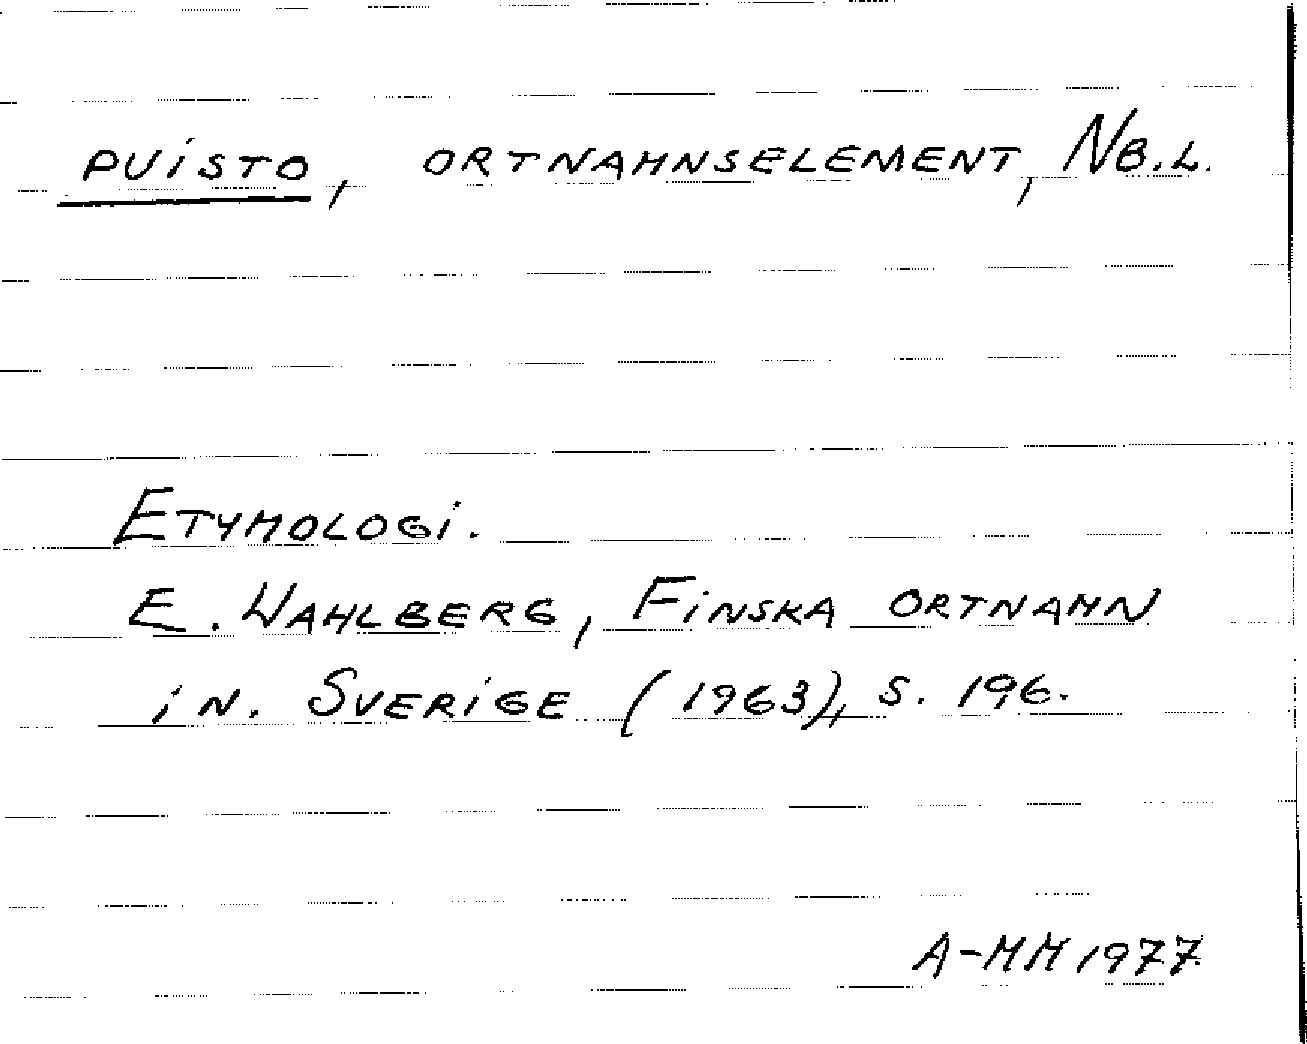 puisto, ortnamnselement, Nb.l.
Etymologi.
E. Wahlberg, Finska ortnamn
in. Sverige (1963), s. 196.
A-MM 1977